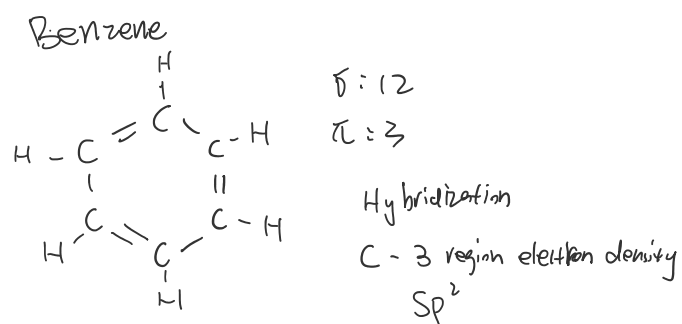 Benzene
H
C
H - C
C - H
C
C - H
H
C
H
σ : 12
π : 3
Hybridization
C - 3 region electron density
Sp²